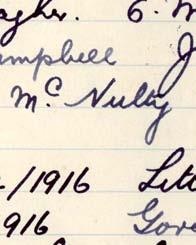 agher. 6. M
ampbell J
Mc Nulty
/1916 Litt
916 Gor